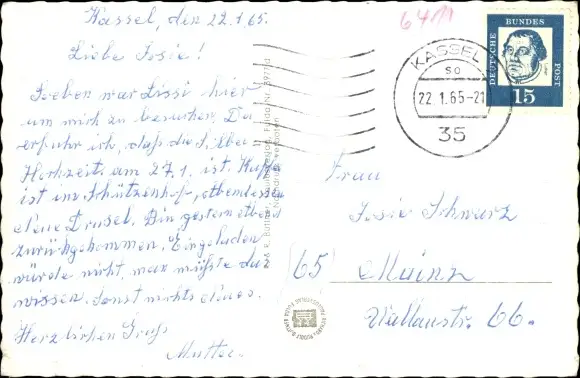 Kassel, den 22.1.65.
Liebe Josie!
Soeben war Lissi hier
um mich zu besuchen. Da
erfuhr ich, daß die Silber
Hochzeit am 27.1. ist. Kaffe
ist im Schützenhof, Abendessen
eine Drusel. Bin gestern abend
zurückgekommen. Eingeladen
würde nicht, man müßte das
wissen. Sonst nichts neues.
Herzlichen Gruß
Mutter.
6411
KASSEL
so
22.1.65-21
35
DEUTSCHE BUNDESPOST
15
Frau
Josie Schwarz
(65) Mainz
Wallaustr. 66.
Nachdruck verboten